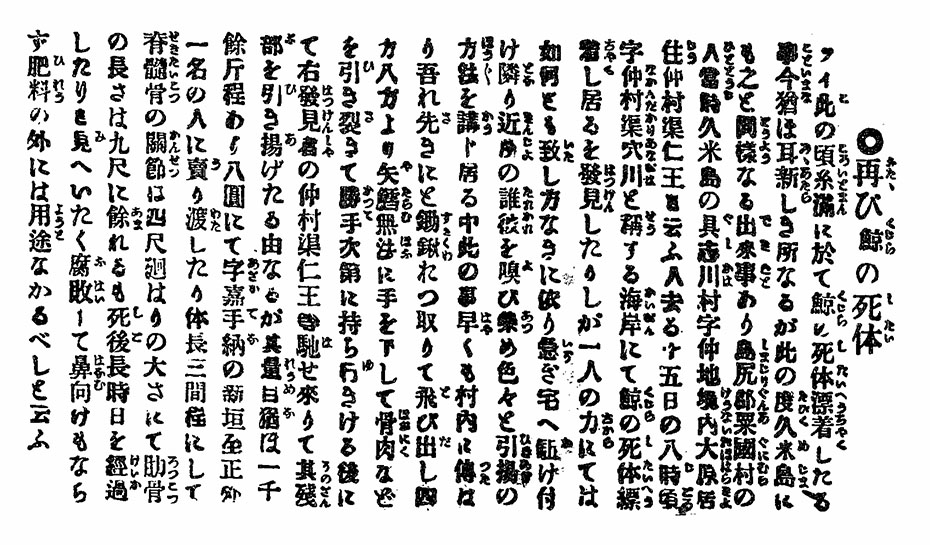 ◎再び鯨の死体
ツイ此の頃糸満に於て鯨の死体漂着したる
事今猶ほ耳新しき所なるが此の度久米島に
も之と同様なる出来事あり島尻郡粟國村の
人當時久米島の具志川村字仲地境内大原居
住仲村渠仁王と云ふ人去る十五日の八時頃
字仲村渠穴川と稱する海岸にて鯨の死体漂
着し居るを發見したりしが一人の力にては
如何とも致し方なきに依り急ぎ宅へ駈け付
け隣り近所の誰彼を喚び集め色々と引揚の
方法を講じ居る中此の事早くも村内に傳は
り吾れ先きにと鋤鍬れつ取りて飛び出し四
方八方より矢鱈無法に手を下して骨肉など
を引き裂きて勝手次第に持ち行きける後に
て右發見者の仲村渠仁王も馳せ來りて其殘
部を引き揚げたる由なるが其量目猶ほ一千
餘斤程あり八圓にて字嘉手納の新垣至正外
一名の人に賣り渡したり体長三間程にして
脊髓骨の關節は四尺廻はりの大さにて肋骨
の長さは九尺に餘れるも死後長時日を經過
したりと見へいたく腐敗して鼻向けもなら
ず肥料の外には用途なかるべしと云ふ